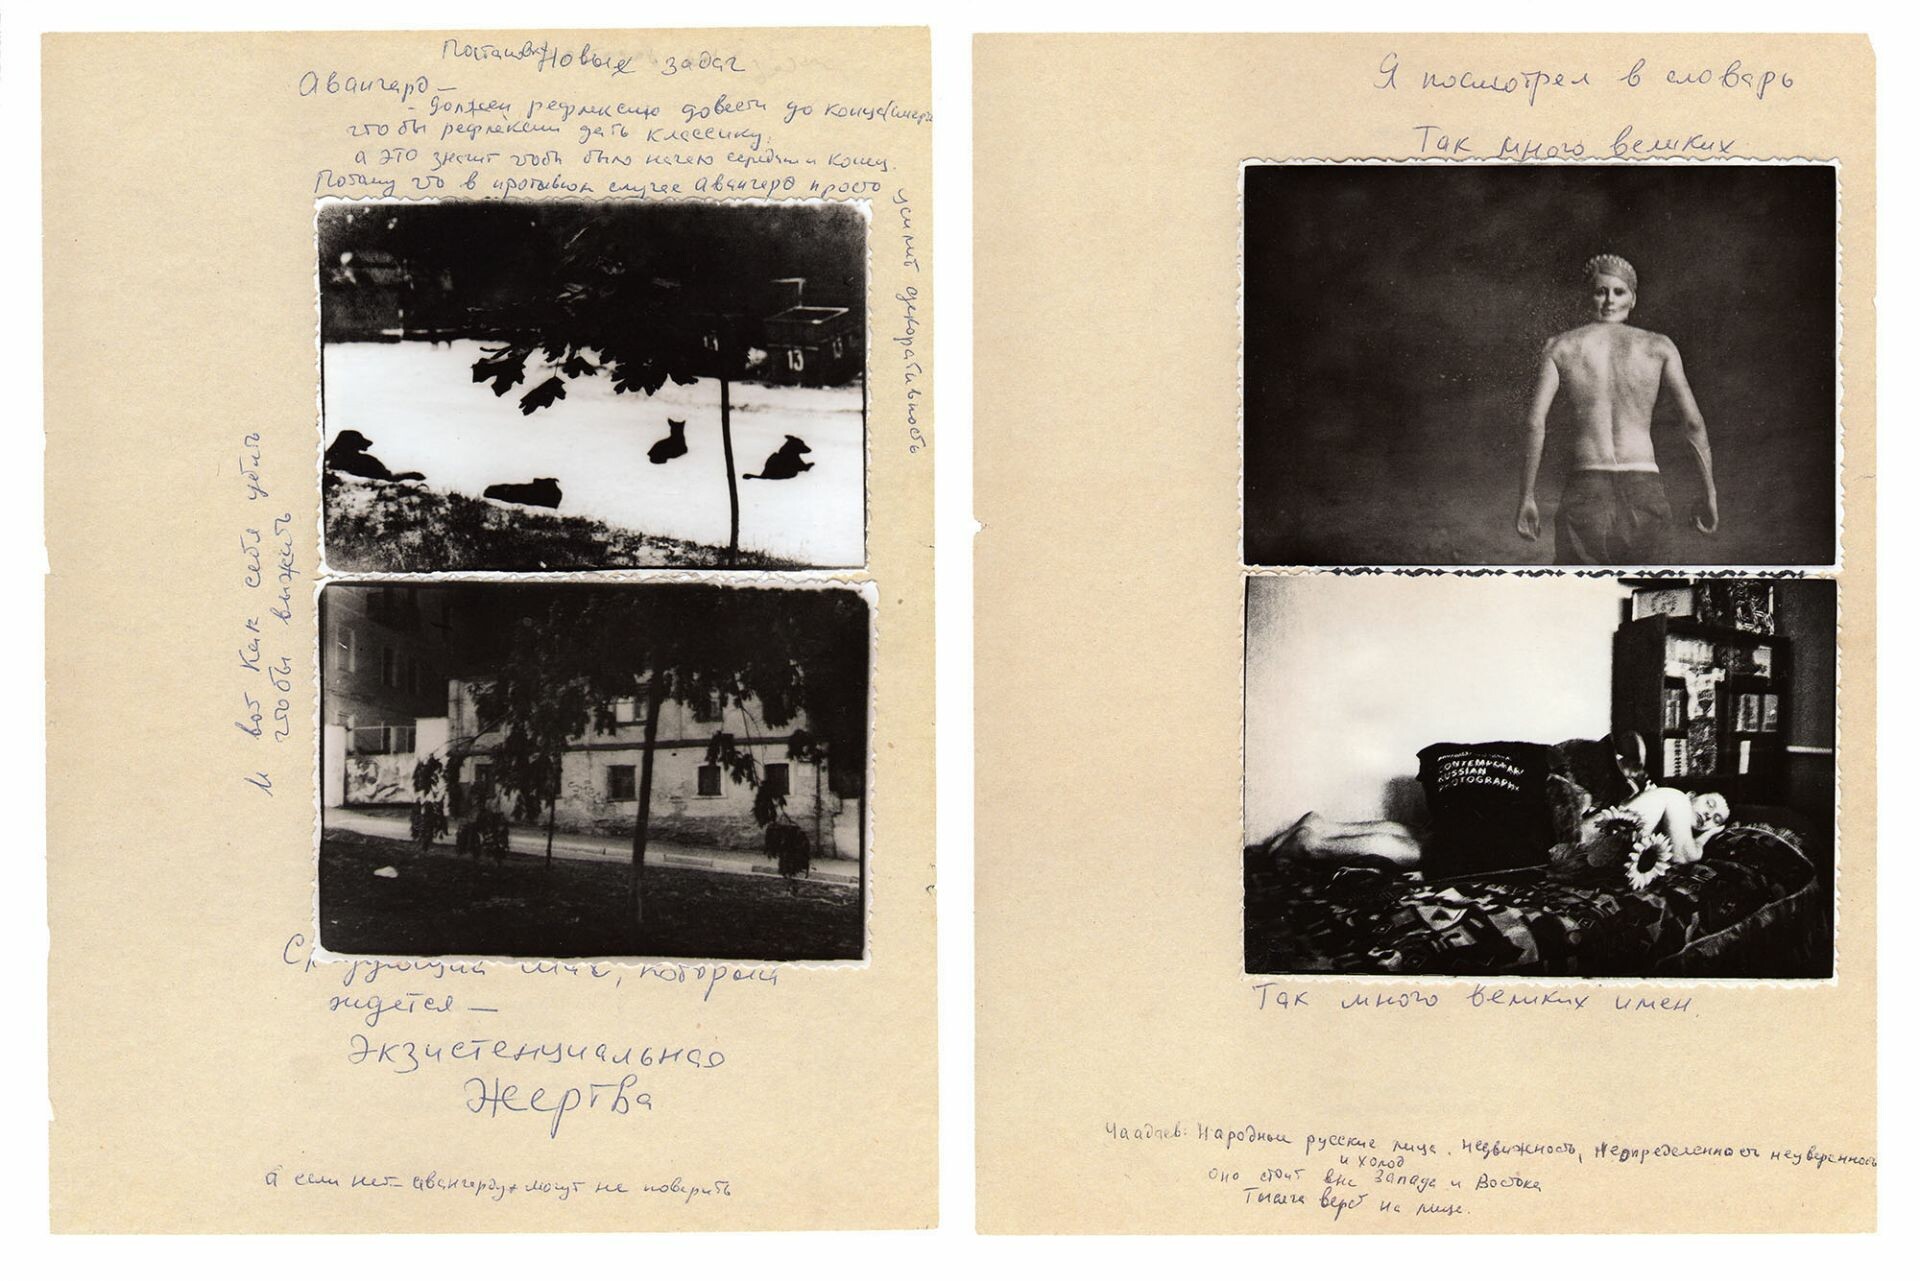 Постановка Новых задач
Авангард —
- должен рефлексию довести до конца
что бы рефлексии дать классику.
а это значит чтобы было начало середина и конец.
Потому что в противном случае Авангард просто
усилит декоративность
13
13
и вот как себя убить
чтобы выжить
Следующий шаг, который
ждется —
Экзистенциальная
Жертва
а если нет — авангарду могут не поверить
Я посмотрел в словарь
Так много великих
CONTEMPORARY
RUSSIAN
PHOTOGRAPHY
Так много великих имен.
Чаадаев: Народные русские лица. Недвижность, Неопределенность неуверенность
и холод
оно стоит вне Запада и Востока
Тысяча верст на лице.